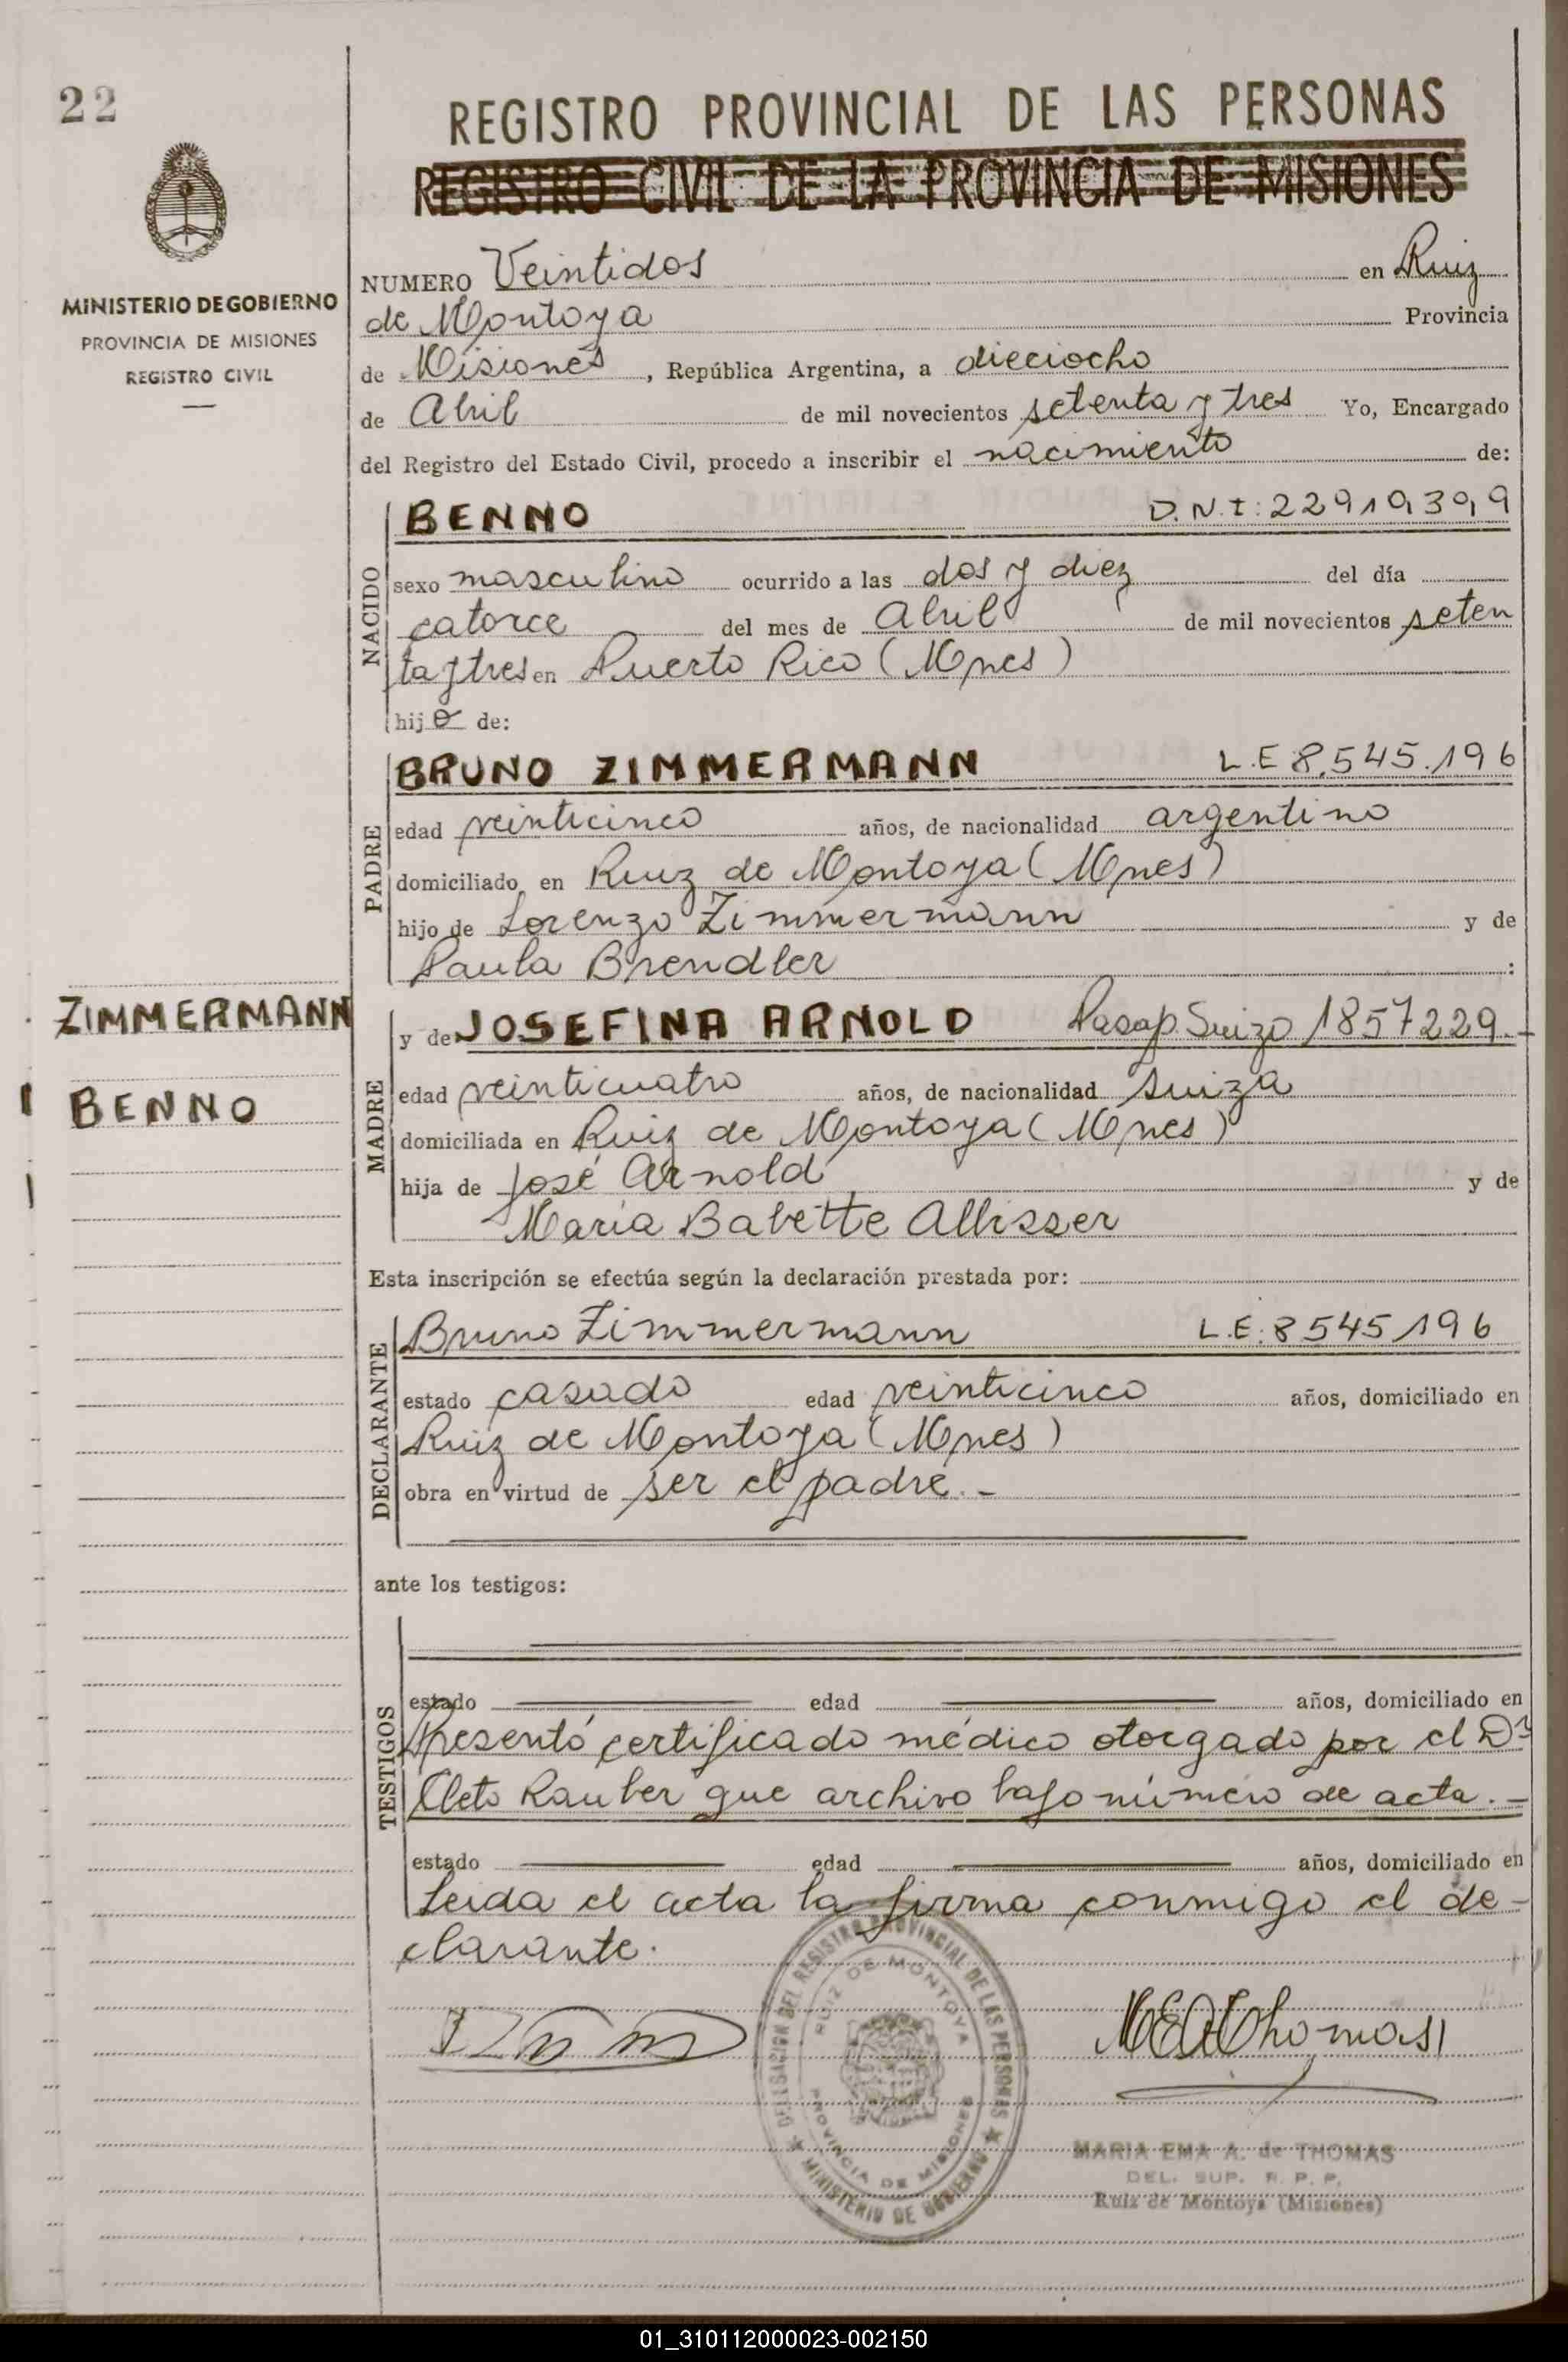 22
REGISTRO PROVINCIAL DE LAS PERSONAS
REGISTRO CIVIL DE LA PROVINCIA DE MISIONES
MINISTERIO DE GOBIERNO
PROVINCIA DE MISIONES
REGISTRO CIVIL
NUMERO Veintidos en Ruiz
de Montoya Provincia
de Misiones, República Argentina, a dieciocho
de Abril de mil novecientos setenta y tres Yo, Encargado
del Registro del Estado Civil, procedo a inscribir el nacimiento de:
NACIDO
BENNO D.N.I: 22.919.399
sexo masculino ocurrido a las dos y diez del día
catorce del mes de Abril de mil novecientos seten
ta y tres en Puerto Rico (Mnes)
hijo de:
PADRE
BRUNO ZIMMERMANN L.E 8.545.196
edad veinticinco años, de nacionalidad argentino
domiciliado en Ruiz de Montoya (Mnes)
hijo de Lorenzo Zimmermann y de
Paula Brendler :
ZIMMERMANN
BENNO
MADRE
y de JOSEFINA ARNOLD Pasap. Suizo 1857229.-
edad veinticuatro años, de nacionalidad suiza
domiciliada en Ruiz de Montoya (Mnes)
hija de José Arnold y de
María Babette
Esta inscripción se efectúa según la declaración prestada por:
DECLARANTE
Bruno Zimmermann L.E: 8545196
estado casado edad veinticinco años, domiciliado en
Ruiz de Montoya (Mnes)
obra en virtud de ser el padre.-
ante los testigos:
TESTIGOS
estado edad años, domiciliado en
Presentó certificado médico otorgado por el Dr
Cleto Rauber que archivo bajo número de acta.-
estado edad años, domiciliado en
Leida el acta la firma conmigo el de-
clarante.
MEAThomas
DELEGACION DEL REGISTRO PROVINCIAL DE LAS PERSONAS
RUIZ DE MONTOYA
PROVINCIA DE MISIONES
MINISTERIO DE GOBIERNO
MARIA EMA A. de THOMAS
DEL. SUP. R. P. P.
Ruiz de Montoya (Misiones)
01_310112000023-002150